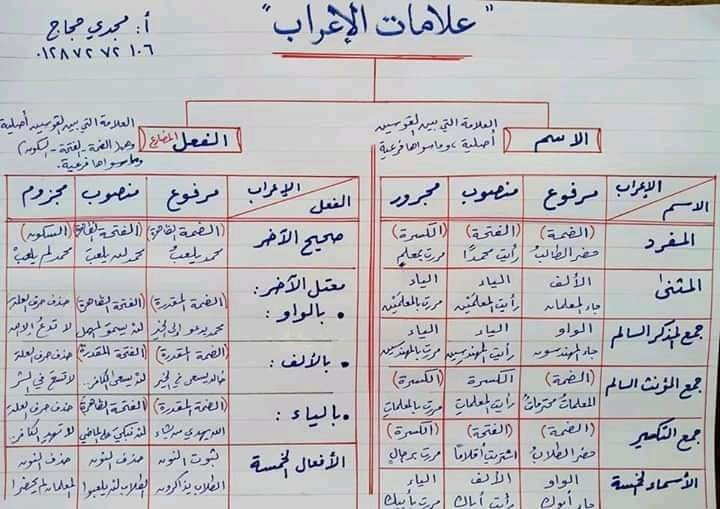 "علامات الإعراب"
أ: مجدي حجاج
٠١٢٨٧٢٧٢١٠٦
الاسم
العلامة التي بين القوسين
أصلية، وماسواها فرعية
الفعل المضارع
العلامة التي بين القوسين أصلية
وهي الضمة - الفتحة - السكون)
وماسواها فرعية.
الإعراب الاسم | مرفوع | منصوب | مجرور
المفرد | (الضمة) | (الفتحة) | (الكسرة)
حضر الطالبُ | رأيت محمدًا | مررت بمعلمٍ
المثنى | الألف | الياء | الياء
جاء المعلمان | رأيت المعلمَيْن | مررت بالمعلمَيْن
جمع المذكر السالم | الواو | الياء | الياء
جاء المهندسون | رأيت المهندسين | مررت بالمهندسين
جمع المؤنث السالم | (الضمة) | الكسرة | (الكسرة)
المعلماتُ محترماتٌ | رأيت المعلماتِ | مررت بالمعلماتِ
جمع التكسير | (الضمة) | (الفتحة) | (الكسرة)
حضر الطلابُ | اشتريت أقلامًا | مررت برجالٍ
الأسماء الخمسة | الواو | الألف | الياء
جاء أبوك | رأيت أباك | مررت بأبيك
الإعراب الفعل | مرفوع | منصوب | مجزوم
صحيح الآخر | (الضمة الظاهرة) | (الفتحة الظاهرة) | (السكون)
محمد يلعبُ | محمد لن يلعبَ | محمد لم يلعبْ
معتل الآخر:
• بالواو: | (الضمة المقدرة) | (الفتحة الظاهرة) | حذف حرف العلة
محمد يدعو إلى الخير | لن يسموَ المهمل | لا تدعُ إلا الله
• بالألف: | (الضمة المقدرة) | (الفتحة المقدرة) | حذف حرف العلة
خالد يسعى في الخير | لن يسعى الكافر.. | لا تسعَ في الشر
• بالياء: | (الضمة المقدرة) | (الفتحة الظاهرة) | حذف حرف العلة
الله يهدي من يشاء | لن تبكيَ على الماضي | لا تهدِ الكافر
الأفعال الخمسة | ثبوت النون | حذف النون | حذف النون
الطلاب يذاكرون | الطلاب لن يلعبوا | المعلمان لم يحضرا